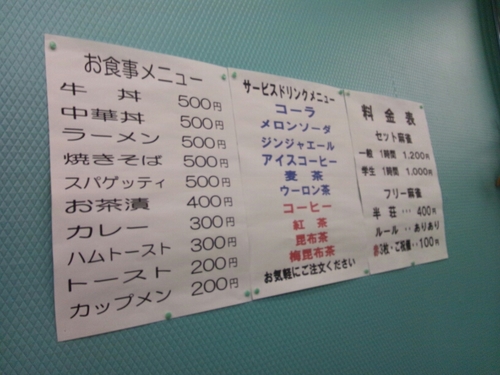 お食事メニュー
牛 丼 500円
中華丼 500円
ラーメン 500円
焼きそば 500円
スパゲッティ 500円
お茶漬 400円
カレー 300円
ハムトースト 300円
トースト 200円
カップメン 200円
サービスドリンクメニュー
コーラ
メロンソーダ
ジンジャエール
アイスコーヒー
麦 茶
ウーロン茶
コーヒー
紅 茶
昆布茶
梅昆布茶
お気軽にご注文ください
料 金 表
セット麻雀
一般 1時間 1,200円
学生 1時間 1,000円
フリー麻雀
半 荘 … 400円
ルール ‥ ありあり
赤3枚・ご祝儀‥100円